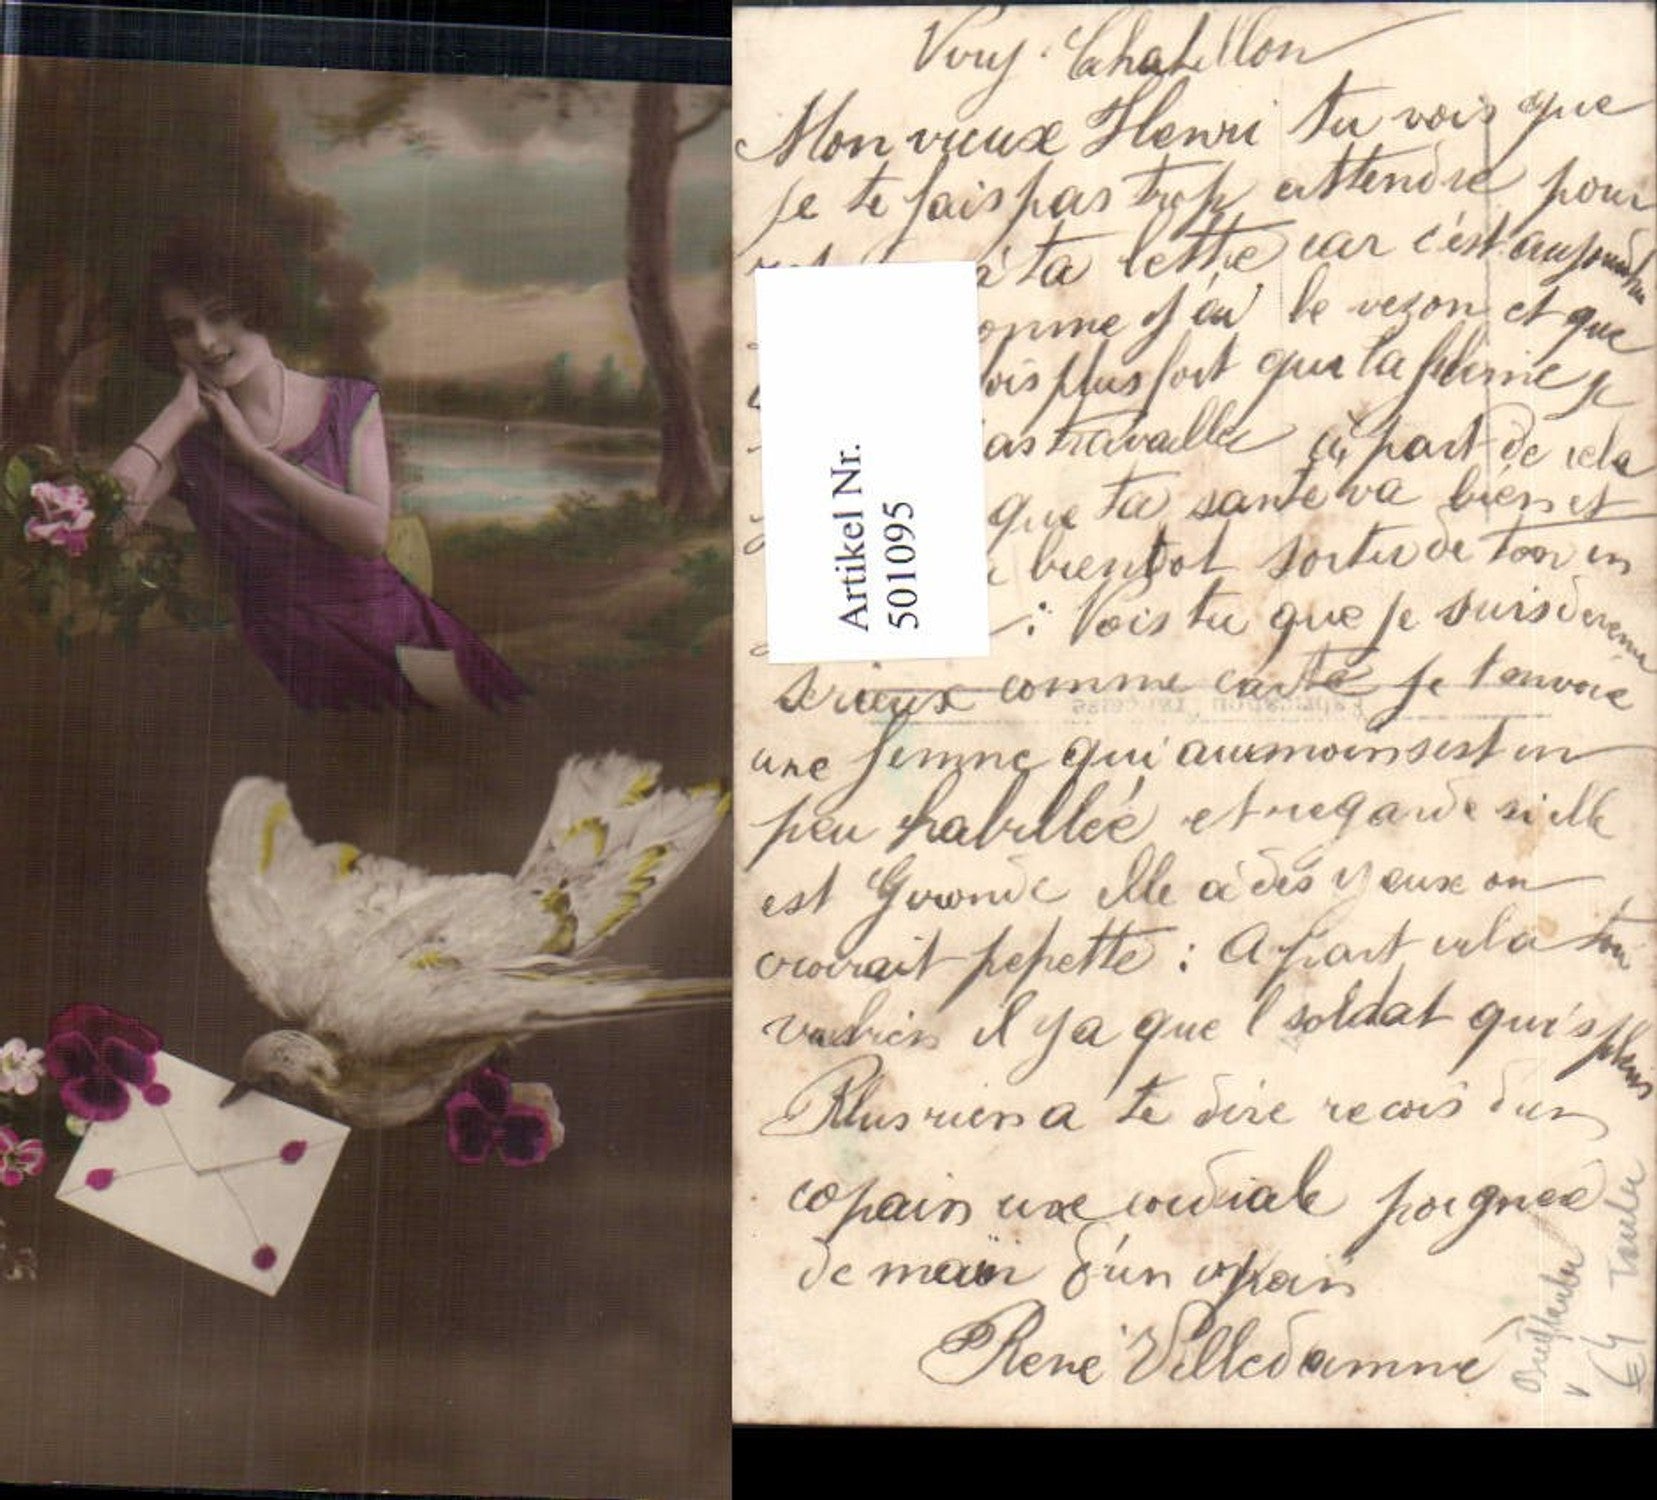 Viry-Chatillon
Mon vieux Henri tu vois que
je te fais pas trop attendre pour
à ta lettre car c'est aujourdhui
omme j'ai le vezon et que
ois plus fort que la flemme je
as travailler à part de cela
que ta sante va bien et
bientot sortir de ton in
: Vois tu que je suis devenu
serieux comme carte je t'envoie
une femme qui aumoins est un
peu habillée et regarde si elle
est Gironde elle à des yeux on
croirait pepette : Apart cela tou
va bien il y a que l soldat qui s plains
Plus rien a te dire recois d'un
copain une cordiale poignee
de main d'un copain
René Villedamné
Artikel Nr.
501095
Brieftauben
Taube